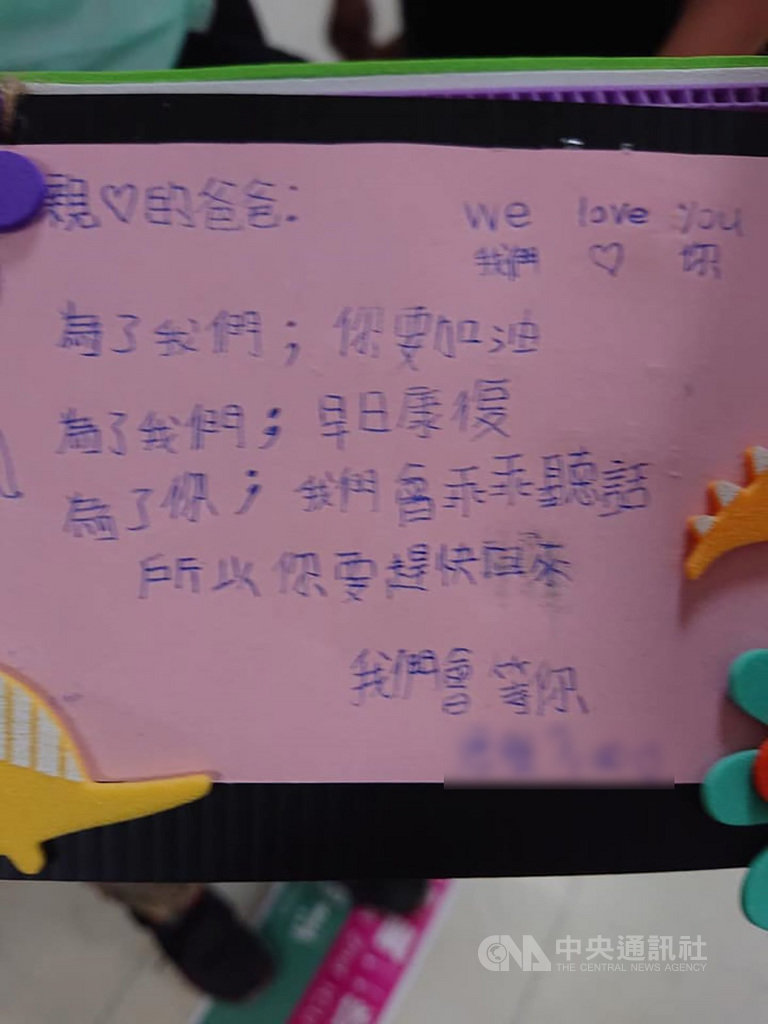 親♡的爸爸:
we love you
我們 ♡ 你
為了我們；你要加油
為了我們；早日康復
為了你；我們會乖乖聽話
所以你要趕快回來
我們會等你
CNA 中央通訊社
THE CENTRAL NEWS AGENCY